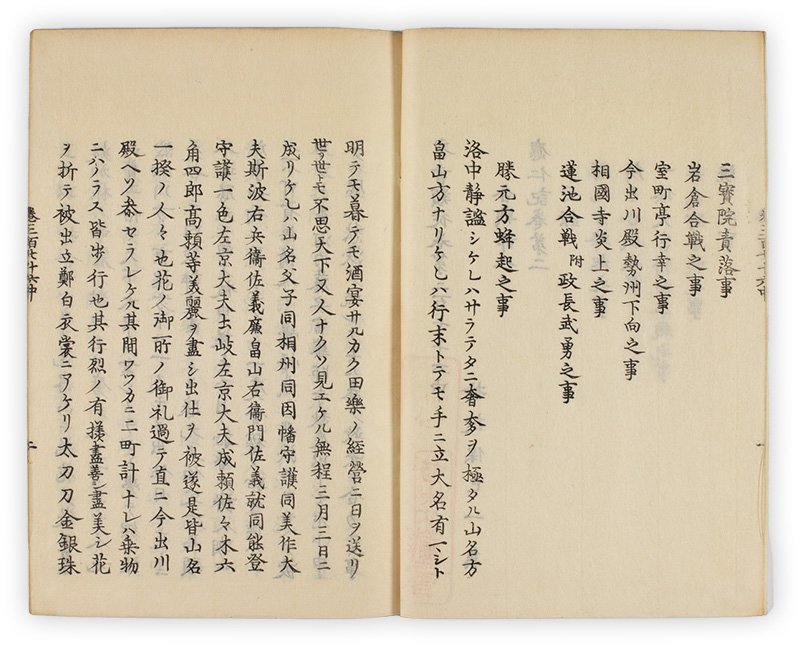 三寳院責落事
岩倉合戰之事
室町亭行幸之事
今出川殿勢州下向之事
相國寺炎上之事
蓮池合戰附政長武勇之事
勝元方蜂起之事
洛中静謐シケレハサラテタニ奢侈ヲ極タル山名方
畠山方ナリケレハ行末トテモ手ニ立大名有マシト
明テモ暮テモ酒宴サルカク田樂ノ経營ニ日ヲ送リ
世ヲ世トモ不思天下又人ナクソ見エケル無程三月三日ニ
成リケレハ山名父子同相州同因幡守護同美作大
夫斯波右兵衞佐義廉畠山右衞門佐義就同能登
守護一色左京大夫土岐左京大夫成頼佐々木六
角四郎高頼等美麗ヲ盡シ出仕ヲ被遂是皆山名
一揆ノ人々也花ノ御所ノ御礼過テ直ニ今出川
殿ヘソ参セラレケル其間ワツカニ二町計ナレハ乗物
ニハノラス皆歩行也其行烈ノ有様盡善盡美シ花
ヲ折テ被出立鄭白衣裳ニアケリ太刀刀金銀珠